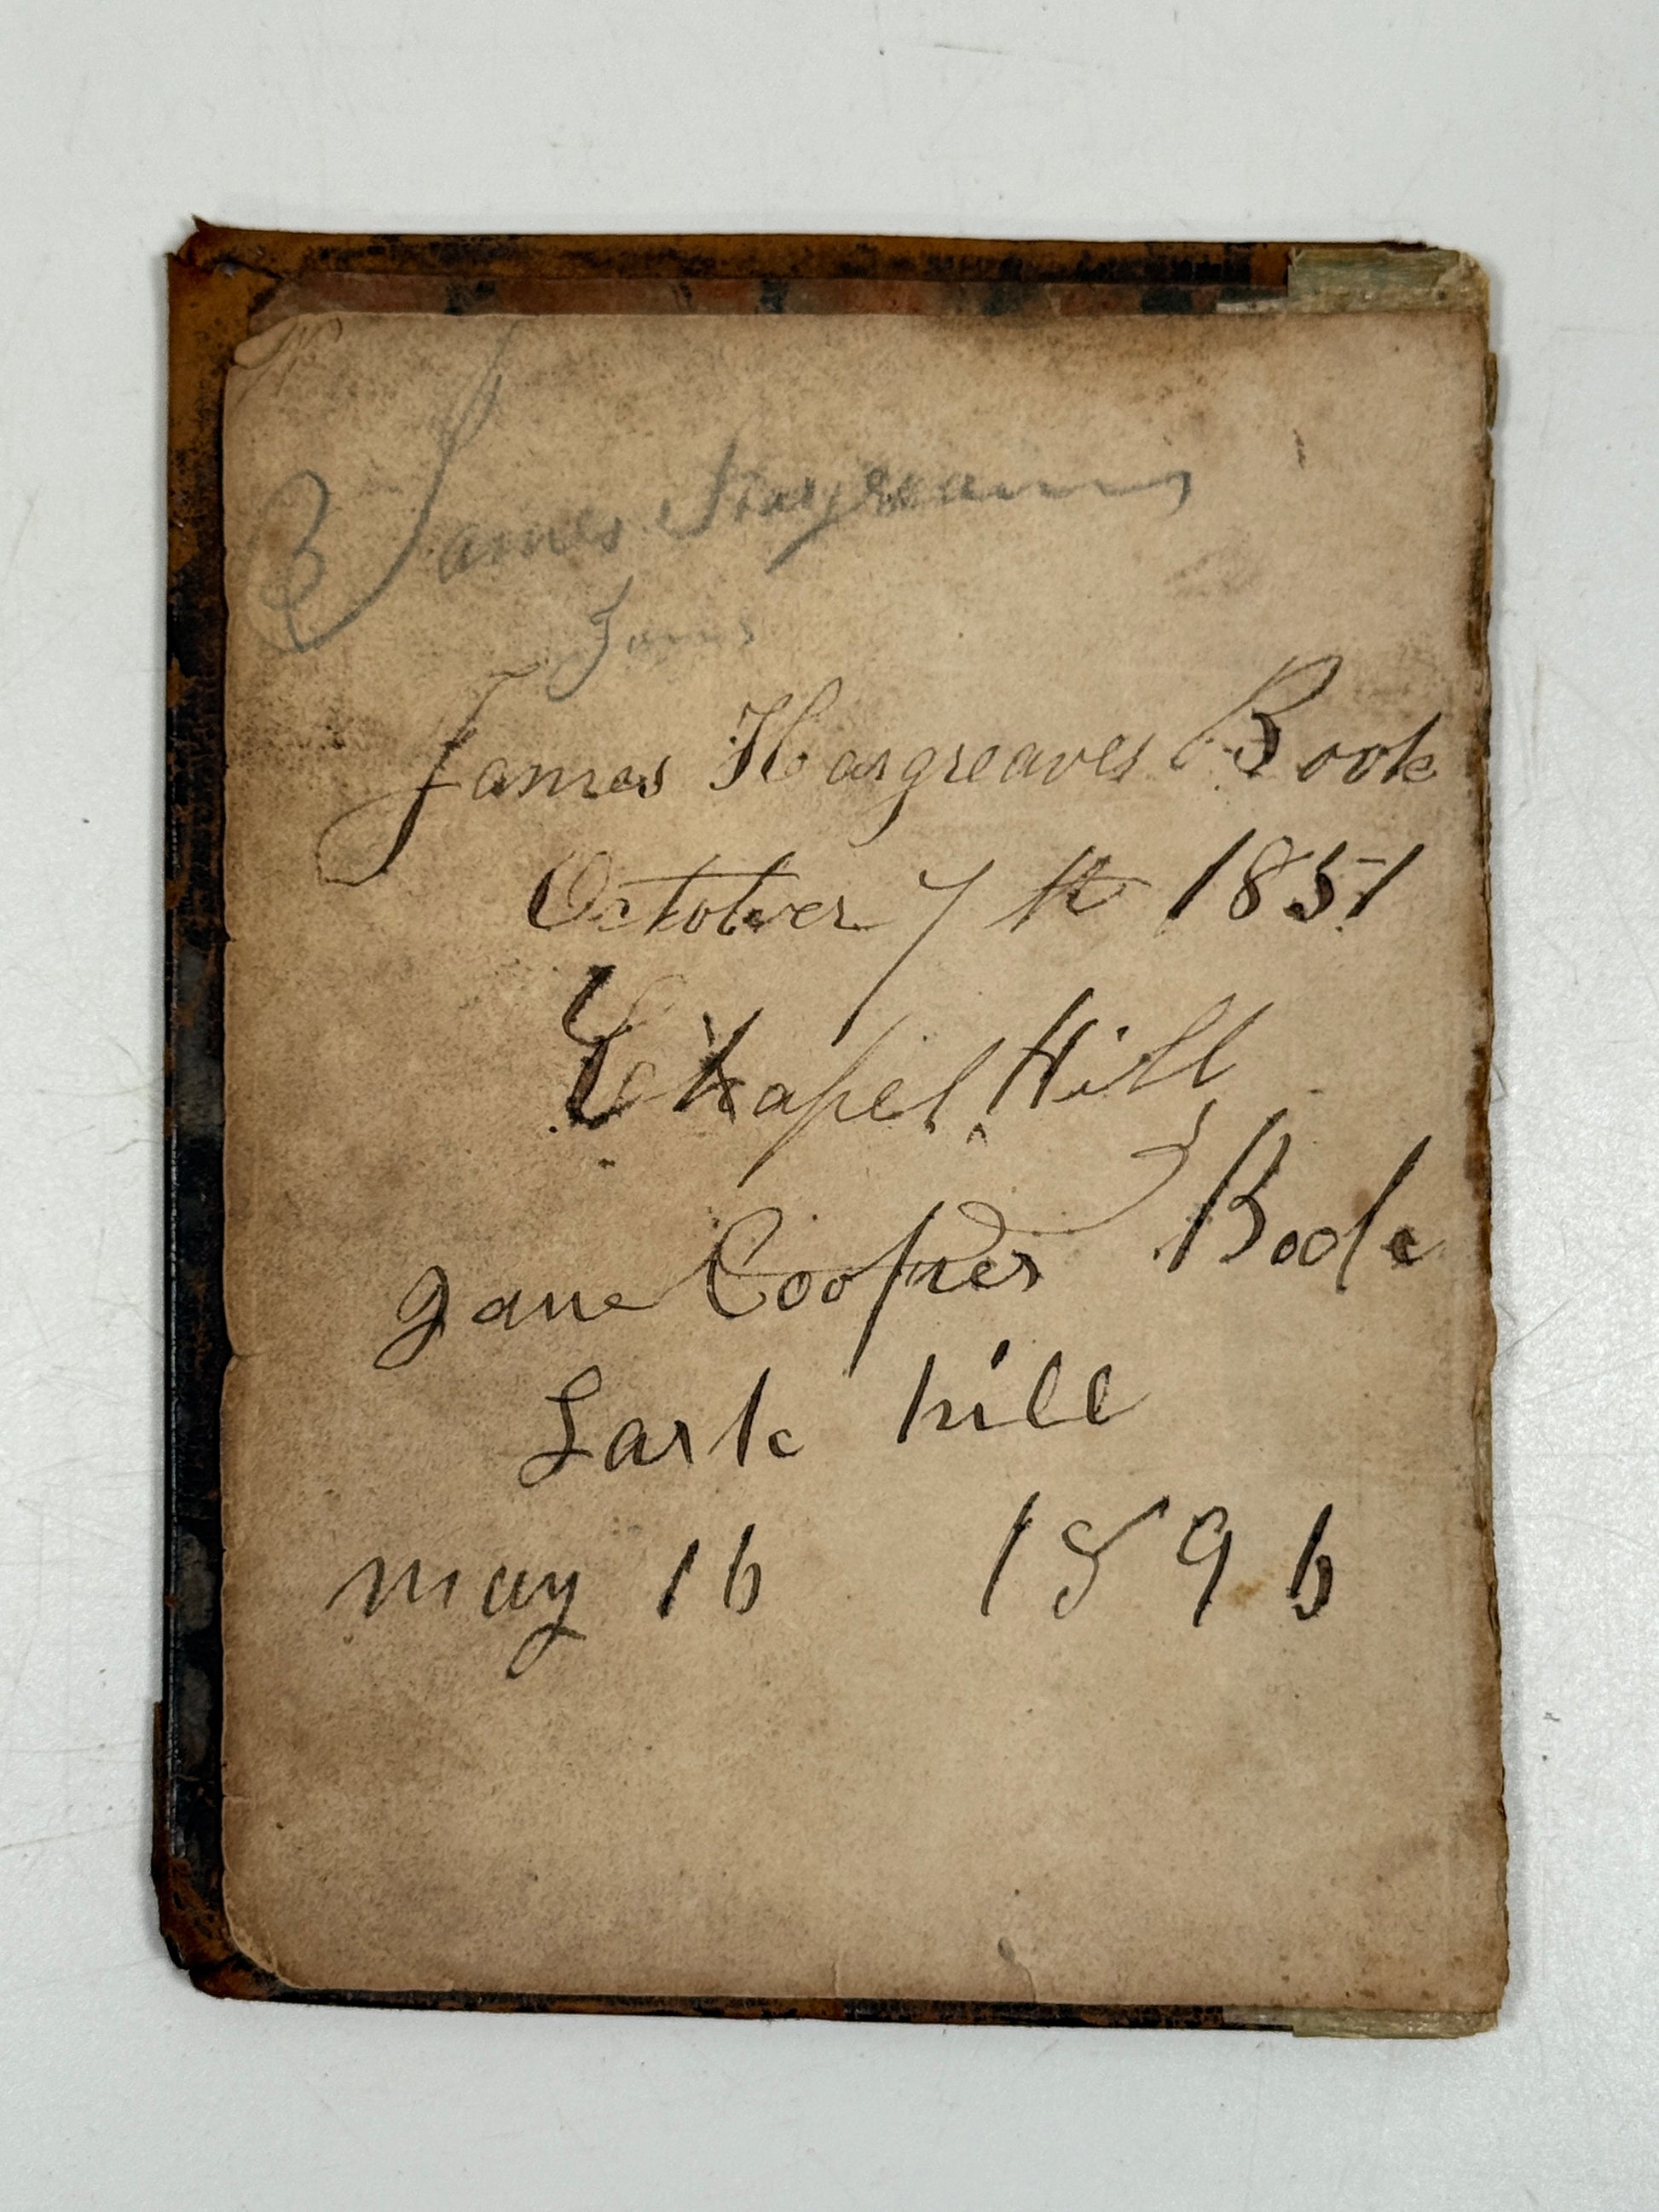 James Hargreaves
James Hargreaves Book
October 7th 1851
Chapel Hill
Jane Cooper Book
Lark hill
may 16 1896